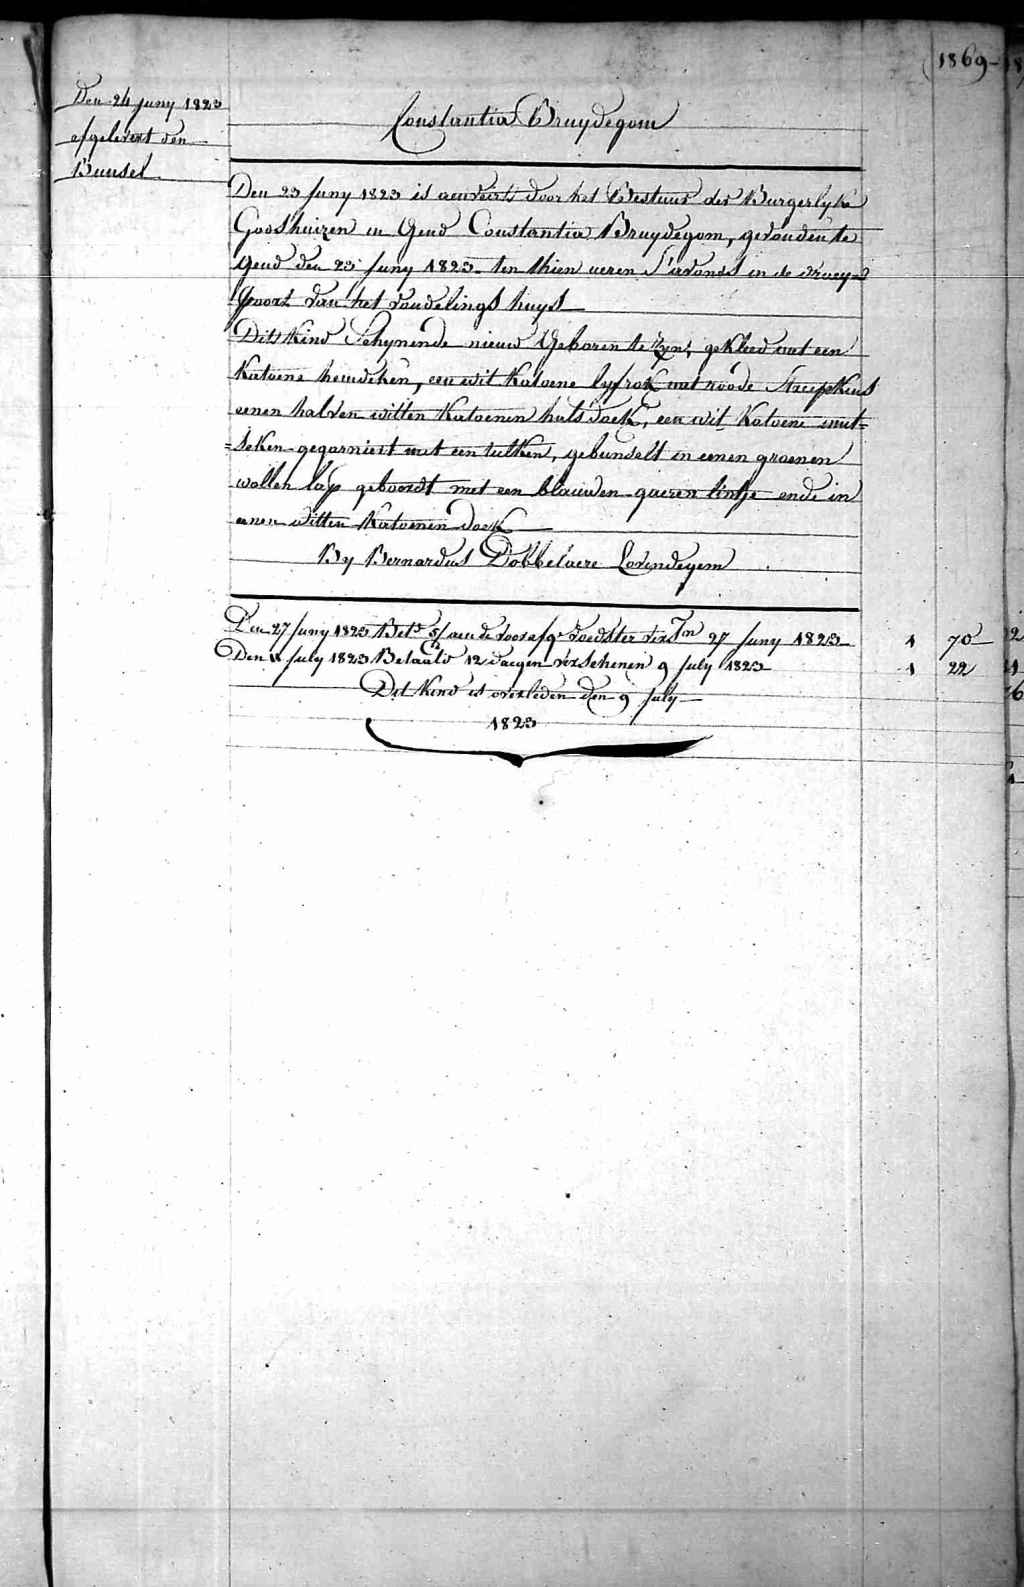 1869
Den 24 Juny 1823
afgelevert den
Bunsel
Constantia Bruydegom
Den 23 Juny 1823 is aenveirt door het Bestuur der Burgerlyke
Godshuizen in Gend Constantia Bruydegom, gevonden te
Gend den 23 Juny 1823 ten thien ueren s'avonds in de draey=
=poort van het vondelings huys
Dits Kind Schynende nieuw Geboren te zyn, gekleed met een
Katoene hemdeken, een wit Katoene lyfrok met roode Streepkens
eenen halven witten Katoenen hals doek, een wit Katoene mut=
=seken gegarniert met een tulken, gebunselt in eenen groenen
wollen lap geboordt met een blauwen gaeren lintje ende in
eenen witten Katoenen doek
By Bernardus Dobbelaere Lovendegem
Den 27 Juny 1823 Bet.d aen de voedster 27 Juny 1823 1 70
Den July 1823 Betaald 12 daegen verschenen 9 July 1823 1 22
Dit Kind is overleden den 9 July
1823